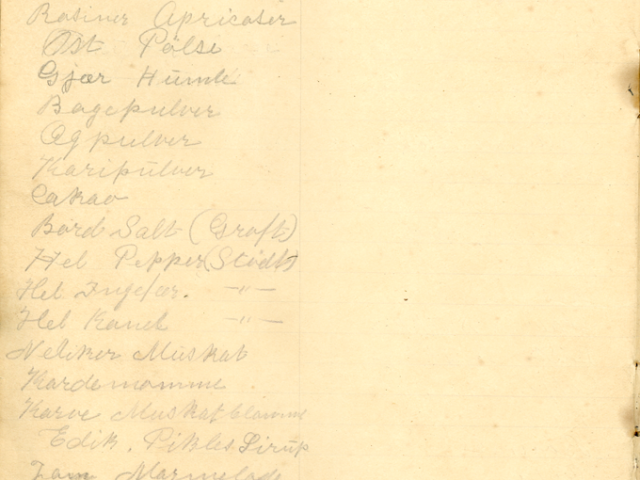 Rosiner Apricoser
Ost Pølse
Gjær Humle
Bagepulver
Ægpulver
Karipulver
Cakao
Bord Salt (Groft)
Hel Pepper (Stødt)
Hel Ingefær. —"—
Hel Kanel —"—
Neliker Muskat
Kardemomme
Karve Muskatblomme
Edik. Pikles Sirup
Jam Marmelade